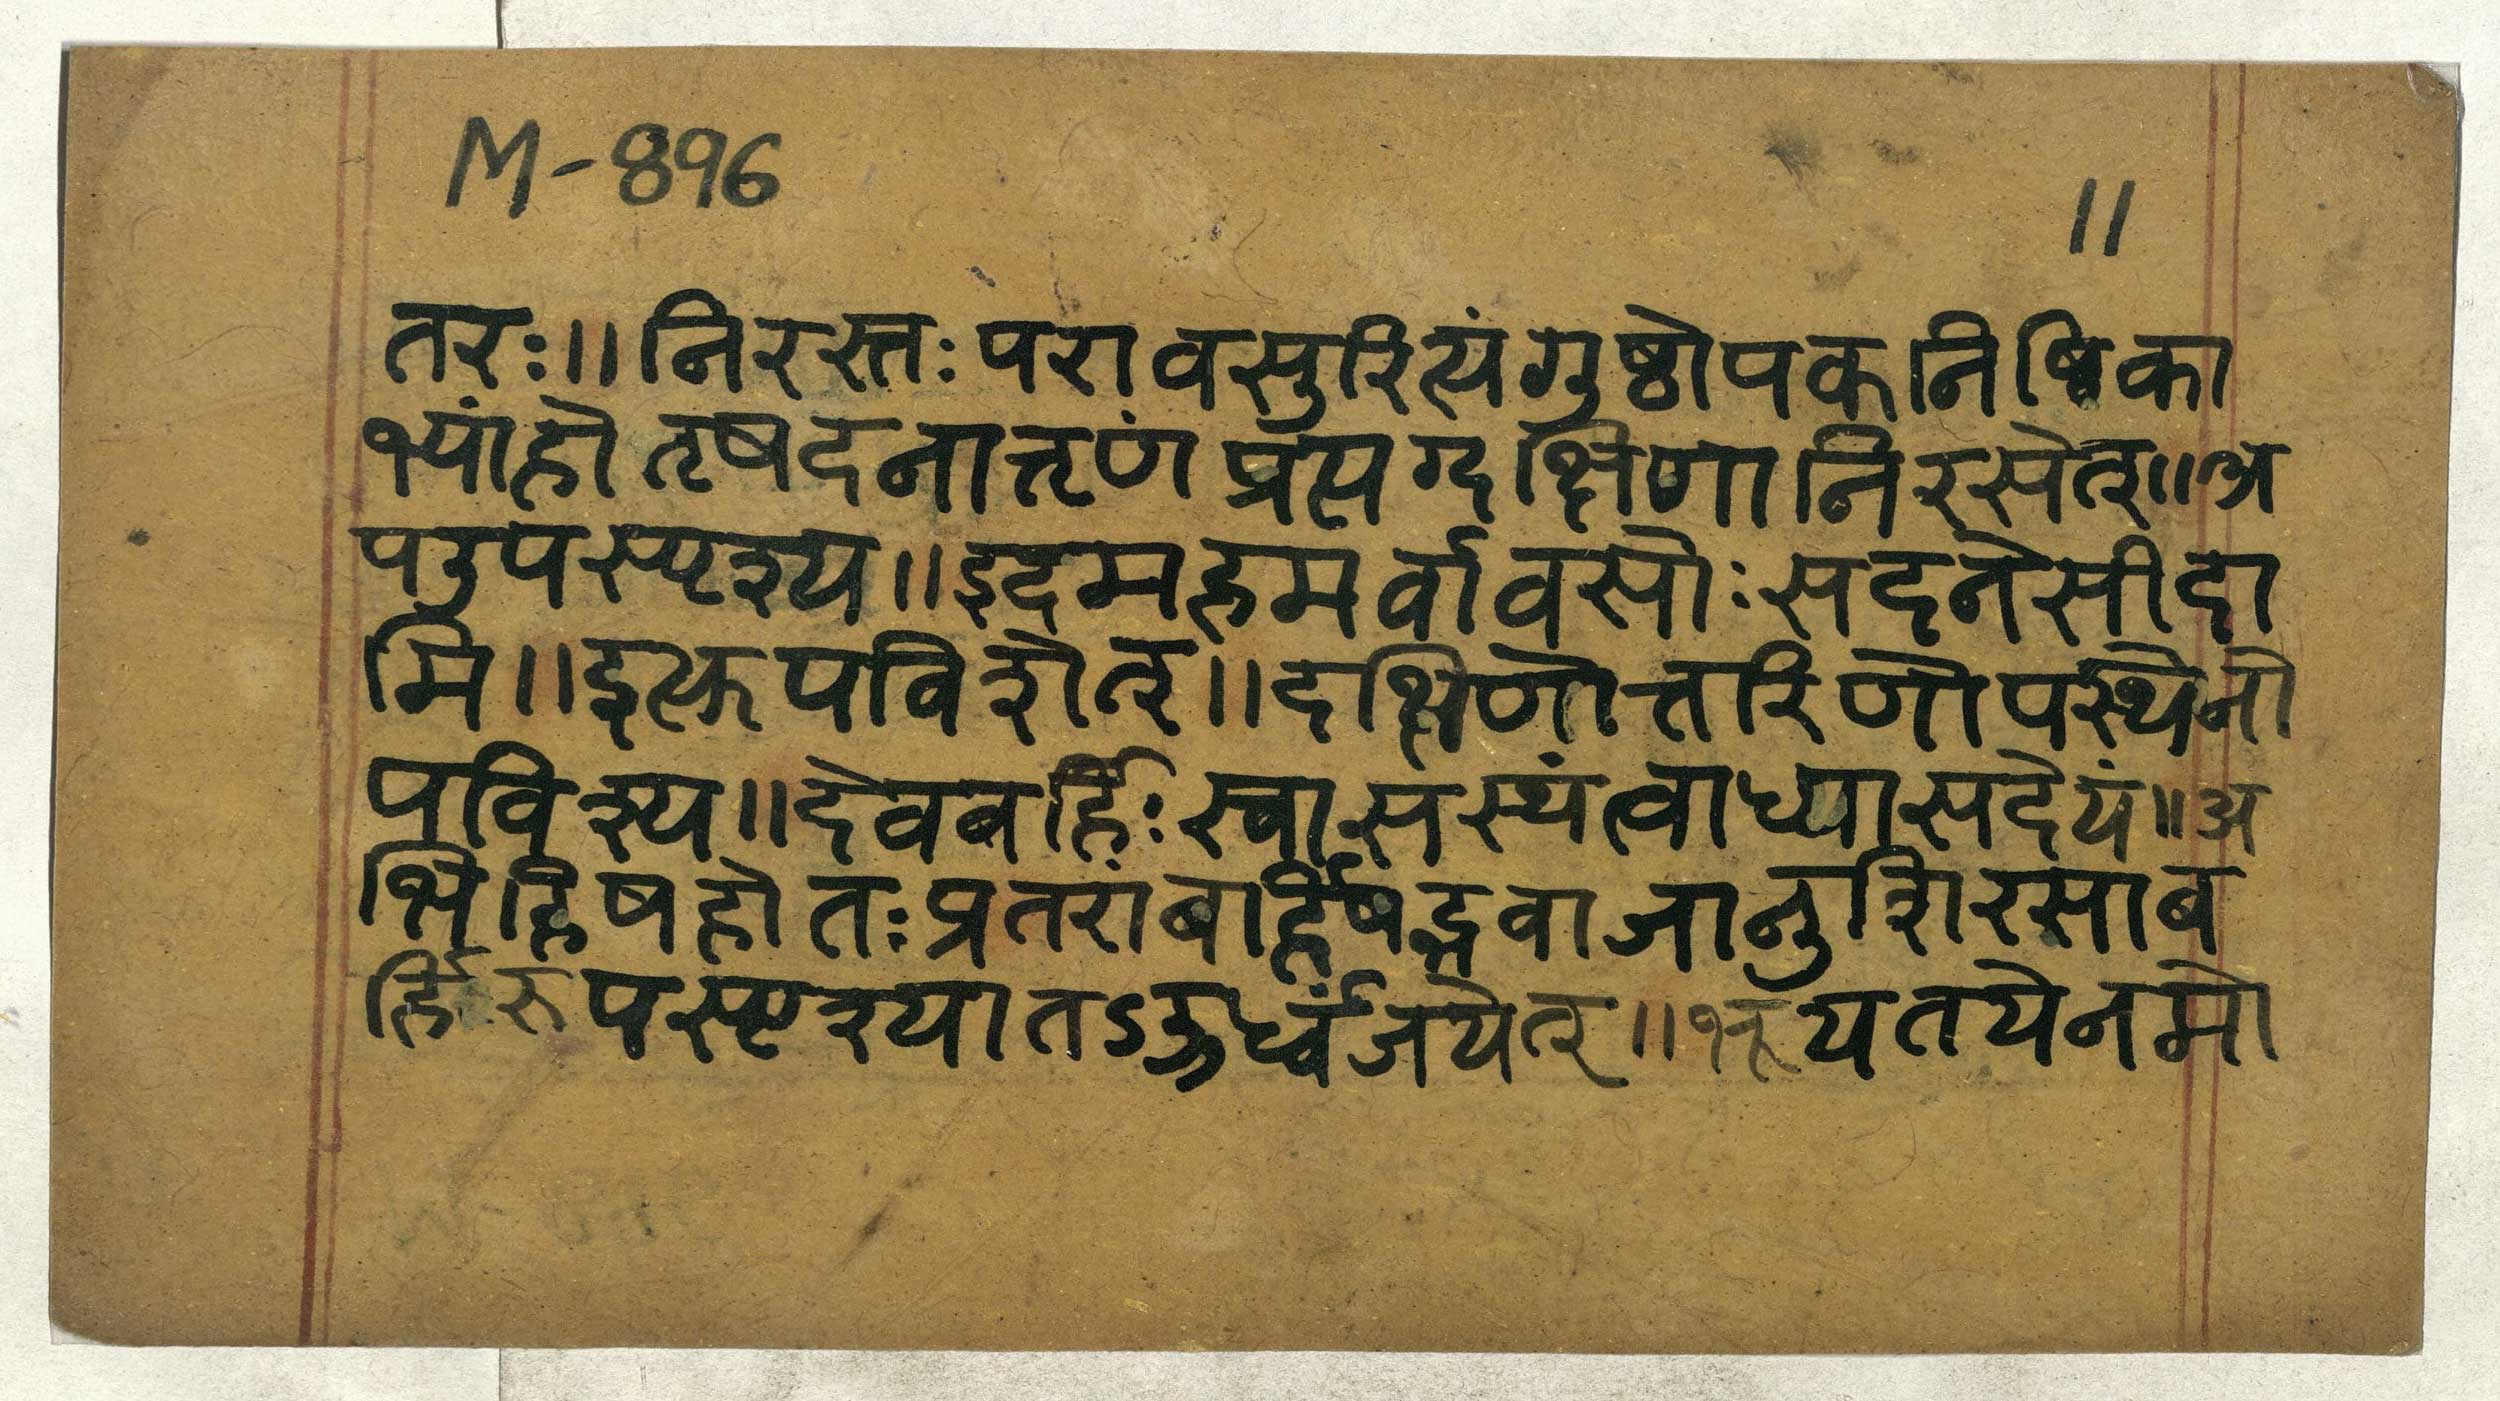 M-896
॥
तरः॥ निरस्तः परावसुरित्यंगुष्ठोपकनिष्ठिका
भ्यांहोतृषदनात्तृणं प्रत्यग्दक्षिणानिरसेत्॥अ
पउपस्पृश्य॥इदमहमर्वावसोः सदनेसीदा
मि॥इत्युपविशेत्॥दक्षिणोत्तरिणोपस्थेनो
पविश्य॥देवबर्हिः स्वासस्थंत्वाध्यासदेयं॥अ
भिहिषहोतः प्रतरांबर्हिषद्भवाजानुशिरसाब
र्हिरुपस्पृश्यातऽऊर्ध्वंजयेत्॥भूयतयेनमो